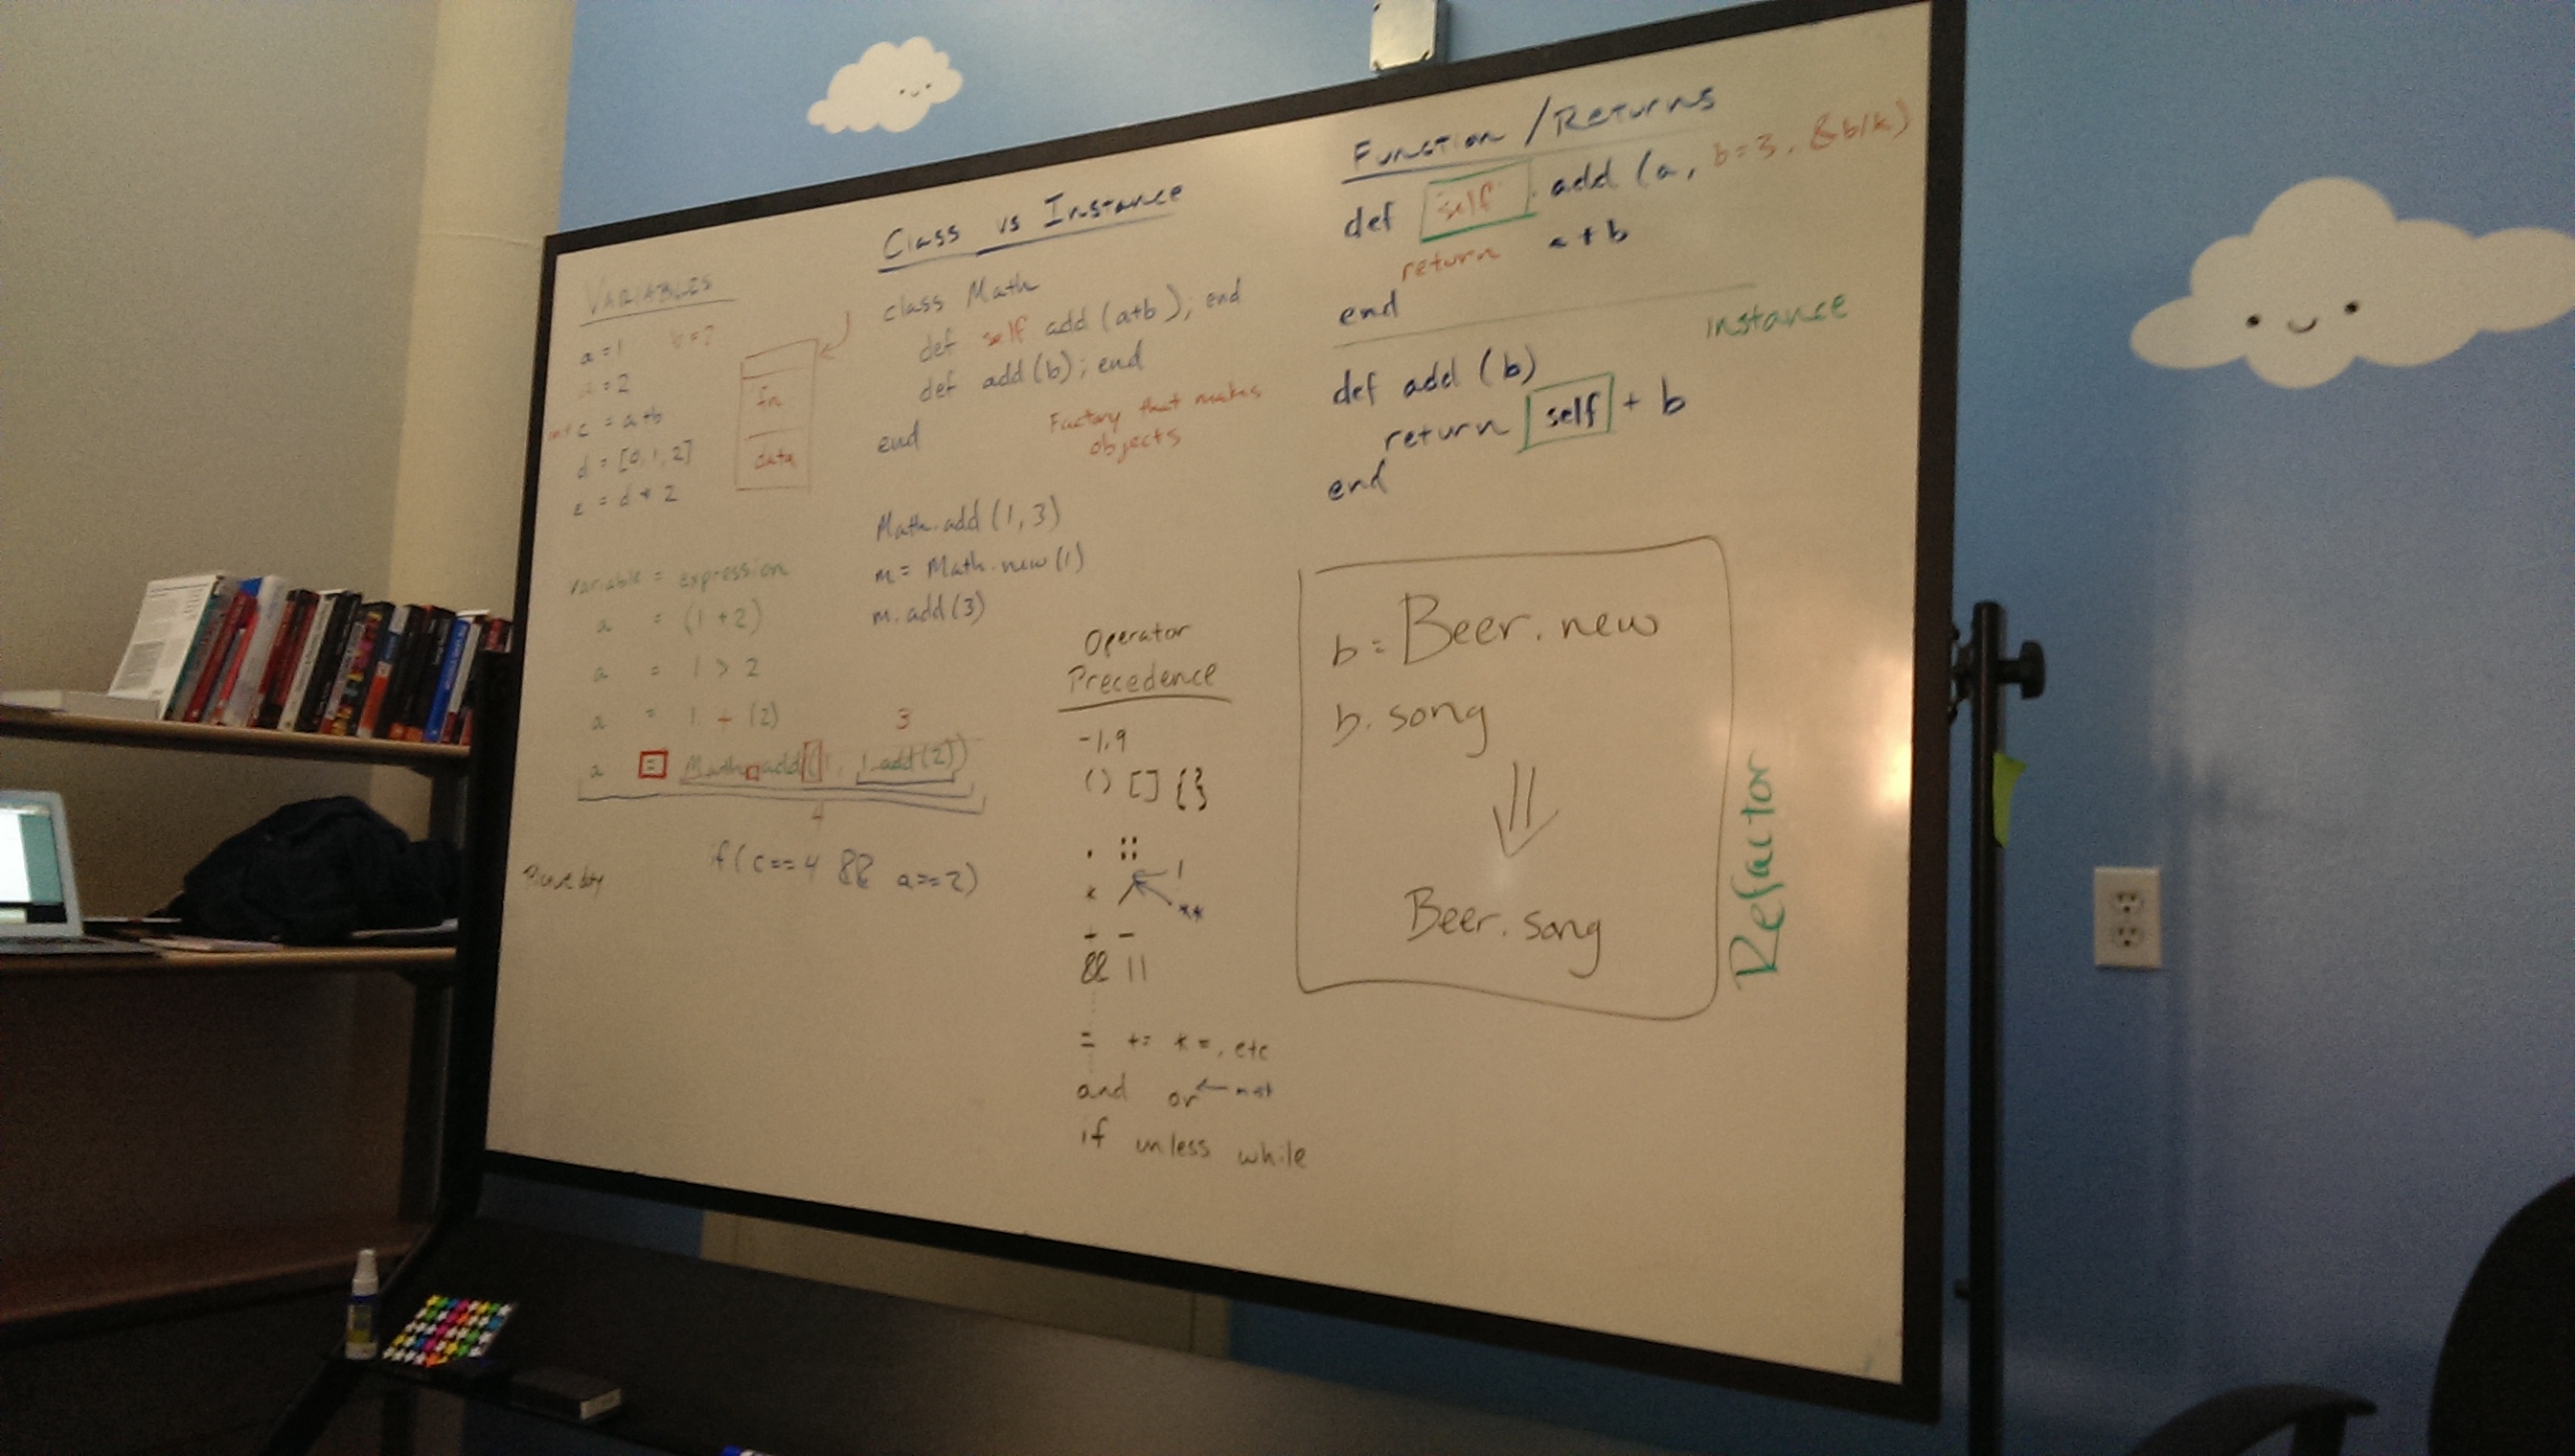 VARIABLES
a = 1 b = ?
a = 2
c = a+b
d = [0, 1, 2]
e = d * 2
fn
data
variable = expression
a = (1 + 2)
a = 1 > 2
a = 1 + (2)
3
a = Math.add(1, 1.add(2))
4
if (c==4 && a==2)
Class vs Instance
class Math
def self add (a+b); end
def add(b); end
end
Factory that makes
objects
Math.add(1,3)
m = Math.new(1)
m.add(3)
Operator
Precedence
-1.9
() [] {}
. ::
* / !
**
+ -
&& ||
= += *=, etc
and or ← not
if unless while
Function / Returns
def self . add (a, b=3, &blk)
return a+b
end
instance
def add (b)
return self + b
end
b = Beer.new
b.song
⇓
Beer.song
Refactor